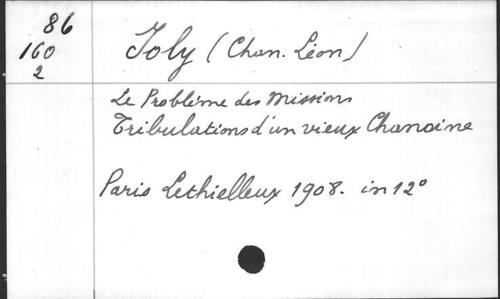 86
160
2
Joly (Chan. Léon)
Le Problème des Missions
Tribulations d'un vieux Chanoine
Paris Lethielleux 1908. in 12°